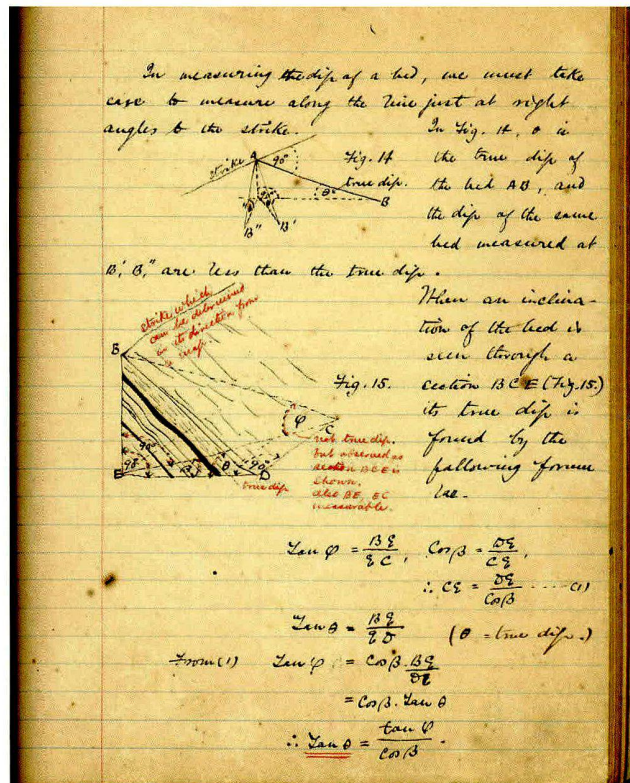 In measuring the dip of a bed, we must take
care to measure along the line just at right
angles to the strike.
In Fig. 14, θ is
the true dip of
the bed AB, and
the dip of the same
bed measured at
strike
A
90°
Fig. 14
true dip.
θ
B
B''
B'
B', B'', are less than the true dip.
When an inclina-
tion of the bed is
seen through a
section BCE (Fig. 15.)
its true dip is
found by the
following formu
lae.
strike which
can be determined
in its direction from
a map
B
Fig. 15.
φ
C
not true dip.
but observed as
section BCE is
shown.
also BE, EC
measurable.
90°
90°
E
β
θ
90°
D
true dip
Tan φ = BE/EC, Cosβ = DE/CE,
∴ CE = DE/Cosβ ----- (1)
Tan θ = BE/ED (θ = true dip.)
From (1) Tan φ = Cosβ. BE/DE
= Cosβ. Tan θ
∴ Tan θ = tan φ/Cosβ.